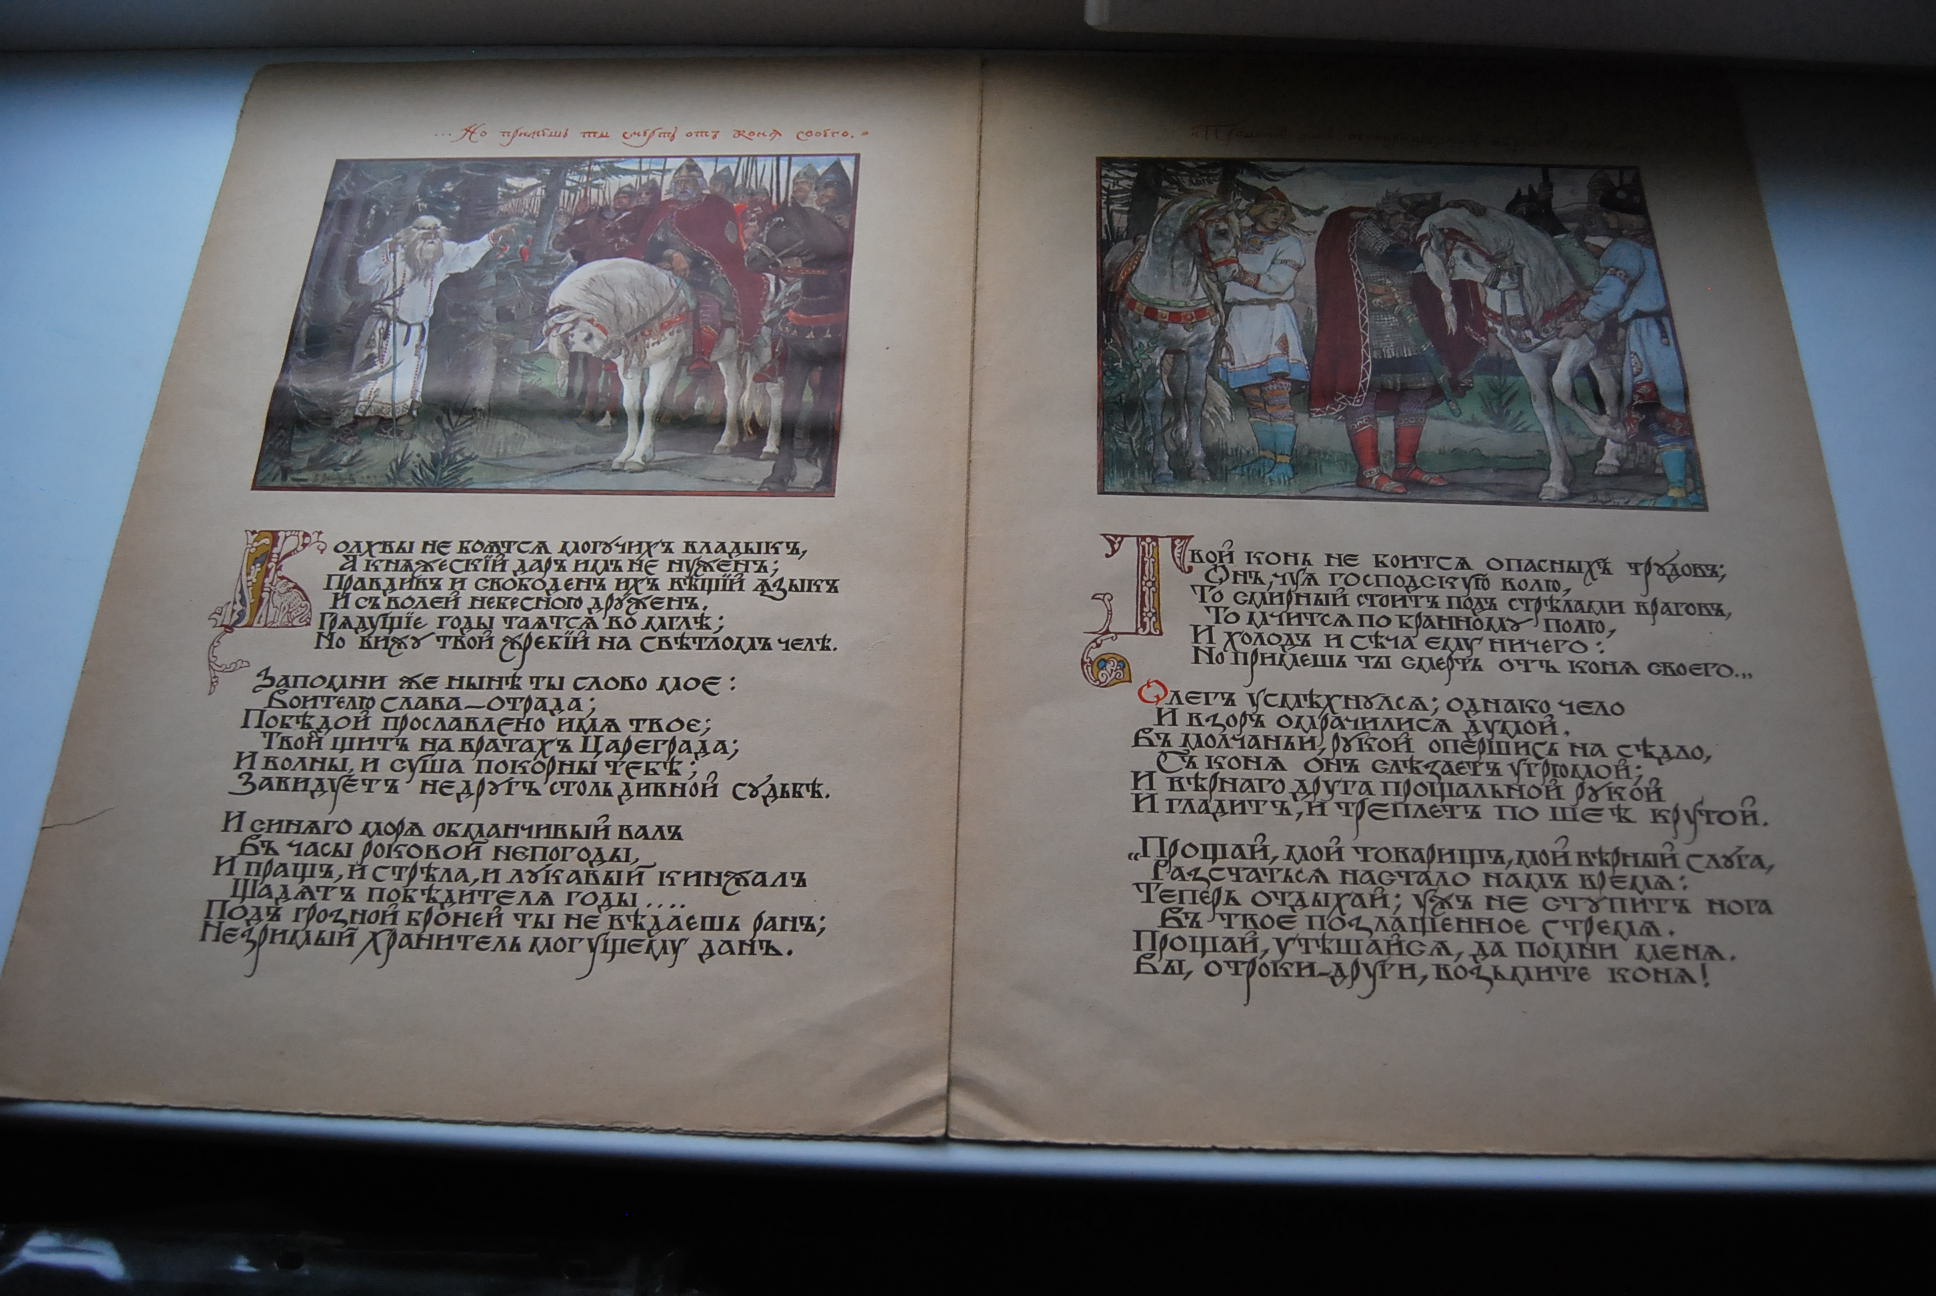 ...Но примешь ты смерть отъ коня своего."
Волхвы не боятся могучихъ владыкъ,
А княжескій даръ имъ не нуженъ;
Правдивъ и свободенъ ихъ вѣщій языкъ
И съ волей небесною друженъ.
Грядущіе годы таятся во мглѣ;
Но вижу твой жребій на свѣтломъ челѣ.
Запомни же нынѣ ты слово мое:
Воителю слава—отрада;
Побѣдой прославлено имя твое;
Твой щитъ на вратахъ Цареграда;
И волны, и суша покорны тебѣ;
Завидуетъ недругъ столь дивной судьбѣ.
И синяго моря обманчивый валъ
Въ часы роковой непогоды,
И пращъ, и стрѣла, и лукавый кинжалъ
Щадятъ побѣдителя годы....
Подъ грозной броней ты не вѣдаешь ранъ;
Незримый хранитель могущему данъ.
Твой конь не боится опасныхъ трудовъ;
Онъ, чуя господскую волю,
То смирный стоитъ подъ стрѣлами враговъ,
То мчится по бранному полю,
И холодъ и сѣча ему ничего:
Но примешь ты смерть отъ коня своего...
Олегъ усмѣхнулся; однако чело
И взоръ омрачилися думой.
Въ молчаньи, рукой опершись на сѣдло,
Съ коня онъ слѣзаетъ угрюмой;
И вѣрнаго друга прощальной рукой
И гладитъ, и треплетъ по шеѣ крутой.
„Прощай, мой товарищъ, мой вѣрный слуга,
Разстаться настало намъ время:
Теперь отдыхай; ужъ не ступитъ нога
Въ твое позлащенное стремя.
Прощай, утѣшайся, да помни меня.
Вы, отроки-други, возьмите коня!